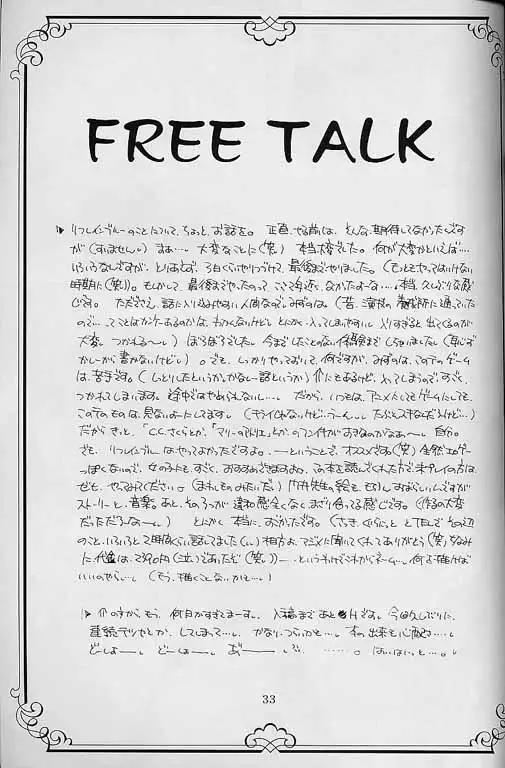 FREE TALK
リフレインブルーのことについて、ちょっと、お話を。正直、やる前は、そんな、期待してなかったんです
が(すいません。)まぁ…。大変なことに(笑)本当大変でした。何が大変かといえば…
いろいろなんですが、とりあえず、3日くらいやりつづけて、最後までやりました。(もっとやってはいけない
時期に(笑)。)もしかして、最後までやったのって、ここ年近く、なかったよーな…、本当、久しぶりな感
じです。ただでさえ、話に入り込みやすい人間なので、みずのは。(昔、演技の養成所に通っていた
ので…ってことはカンケーあるのかは、わかんないけど。とにかく、入ってしまいやすい。入りすぎると出てくるのが
大変。つかれるー。)ぼろぼろでした。今までしたことのない
かしーから書かないけど。)。さて、しっかりやっておいて、何ですが、みずのは、この手のゲーム
は、苦手です。(しっとりしたというか、かなしー話というか)
つかれてしまいます。途中ではやめられないし…。だから、いつも、アニメにしてもゲームにしても、
この手のものは、見ないよーにしてます。(キライじゃないけど…うーん…。たぶんスキなんだろけど…)
だから、きっと、「C.C.さくら」とか、「マリーのアトリエ」とか、のフンイキがおきらくなのかなぁー。自分。
さて、リフレインブルーはやってよかったですよ。ーということで、オススメです(笑)全然エロゲー
っぽくないので、女の子にも、すごく、おすすめできますねぇ。この本を読んでくれた方で、未プレイの方は、
ぜひ、やってみてください。(まわしものみたいだ)門井先生の絵も、もちろん、すばらしいんですが
ストーリーと、音楽と、あと、その3つが、違和感全くなく、まざり合ってる感じです。(作るの大変
だっただろーなー。)とにかく、本当に、よかったです。(さっき、ぐらにっと、とTELで、その辺
のこと、いろいろと2時間ぐらい話してました(。)相方よ、マジメに聞いてくれてありがとう(笑)ちなみ
に、代金は、2390円(泣)であったぞ(笑)。)ー…というわけで、これからネーム…。何を描けば
いいのやら…。(もう、描くことないかも…)
のすから、もう、何日かすぎてまーす。入稿まであと
連続テツヤとか、してしまって…。かなりつらいかと…。本の出来も心配で…。
どーしよー。どーしよー。あ゛ー…。はいはいっと…。
33